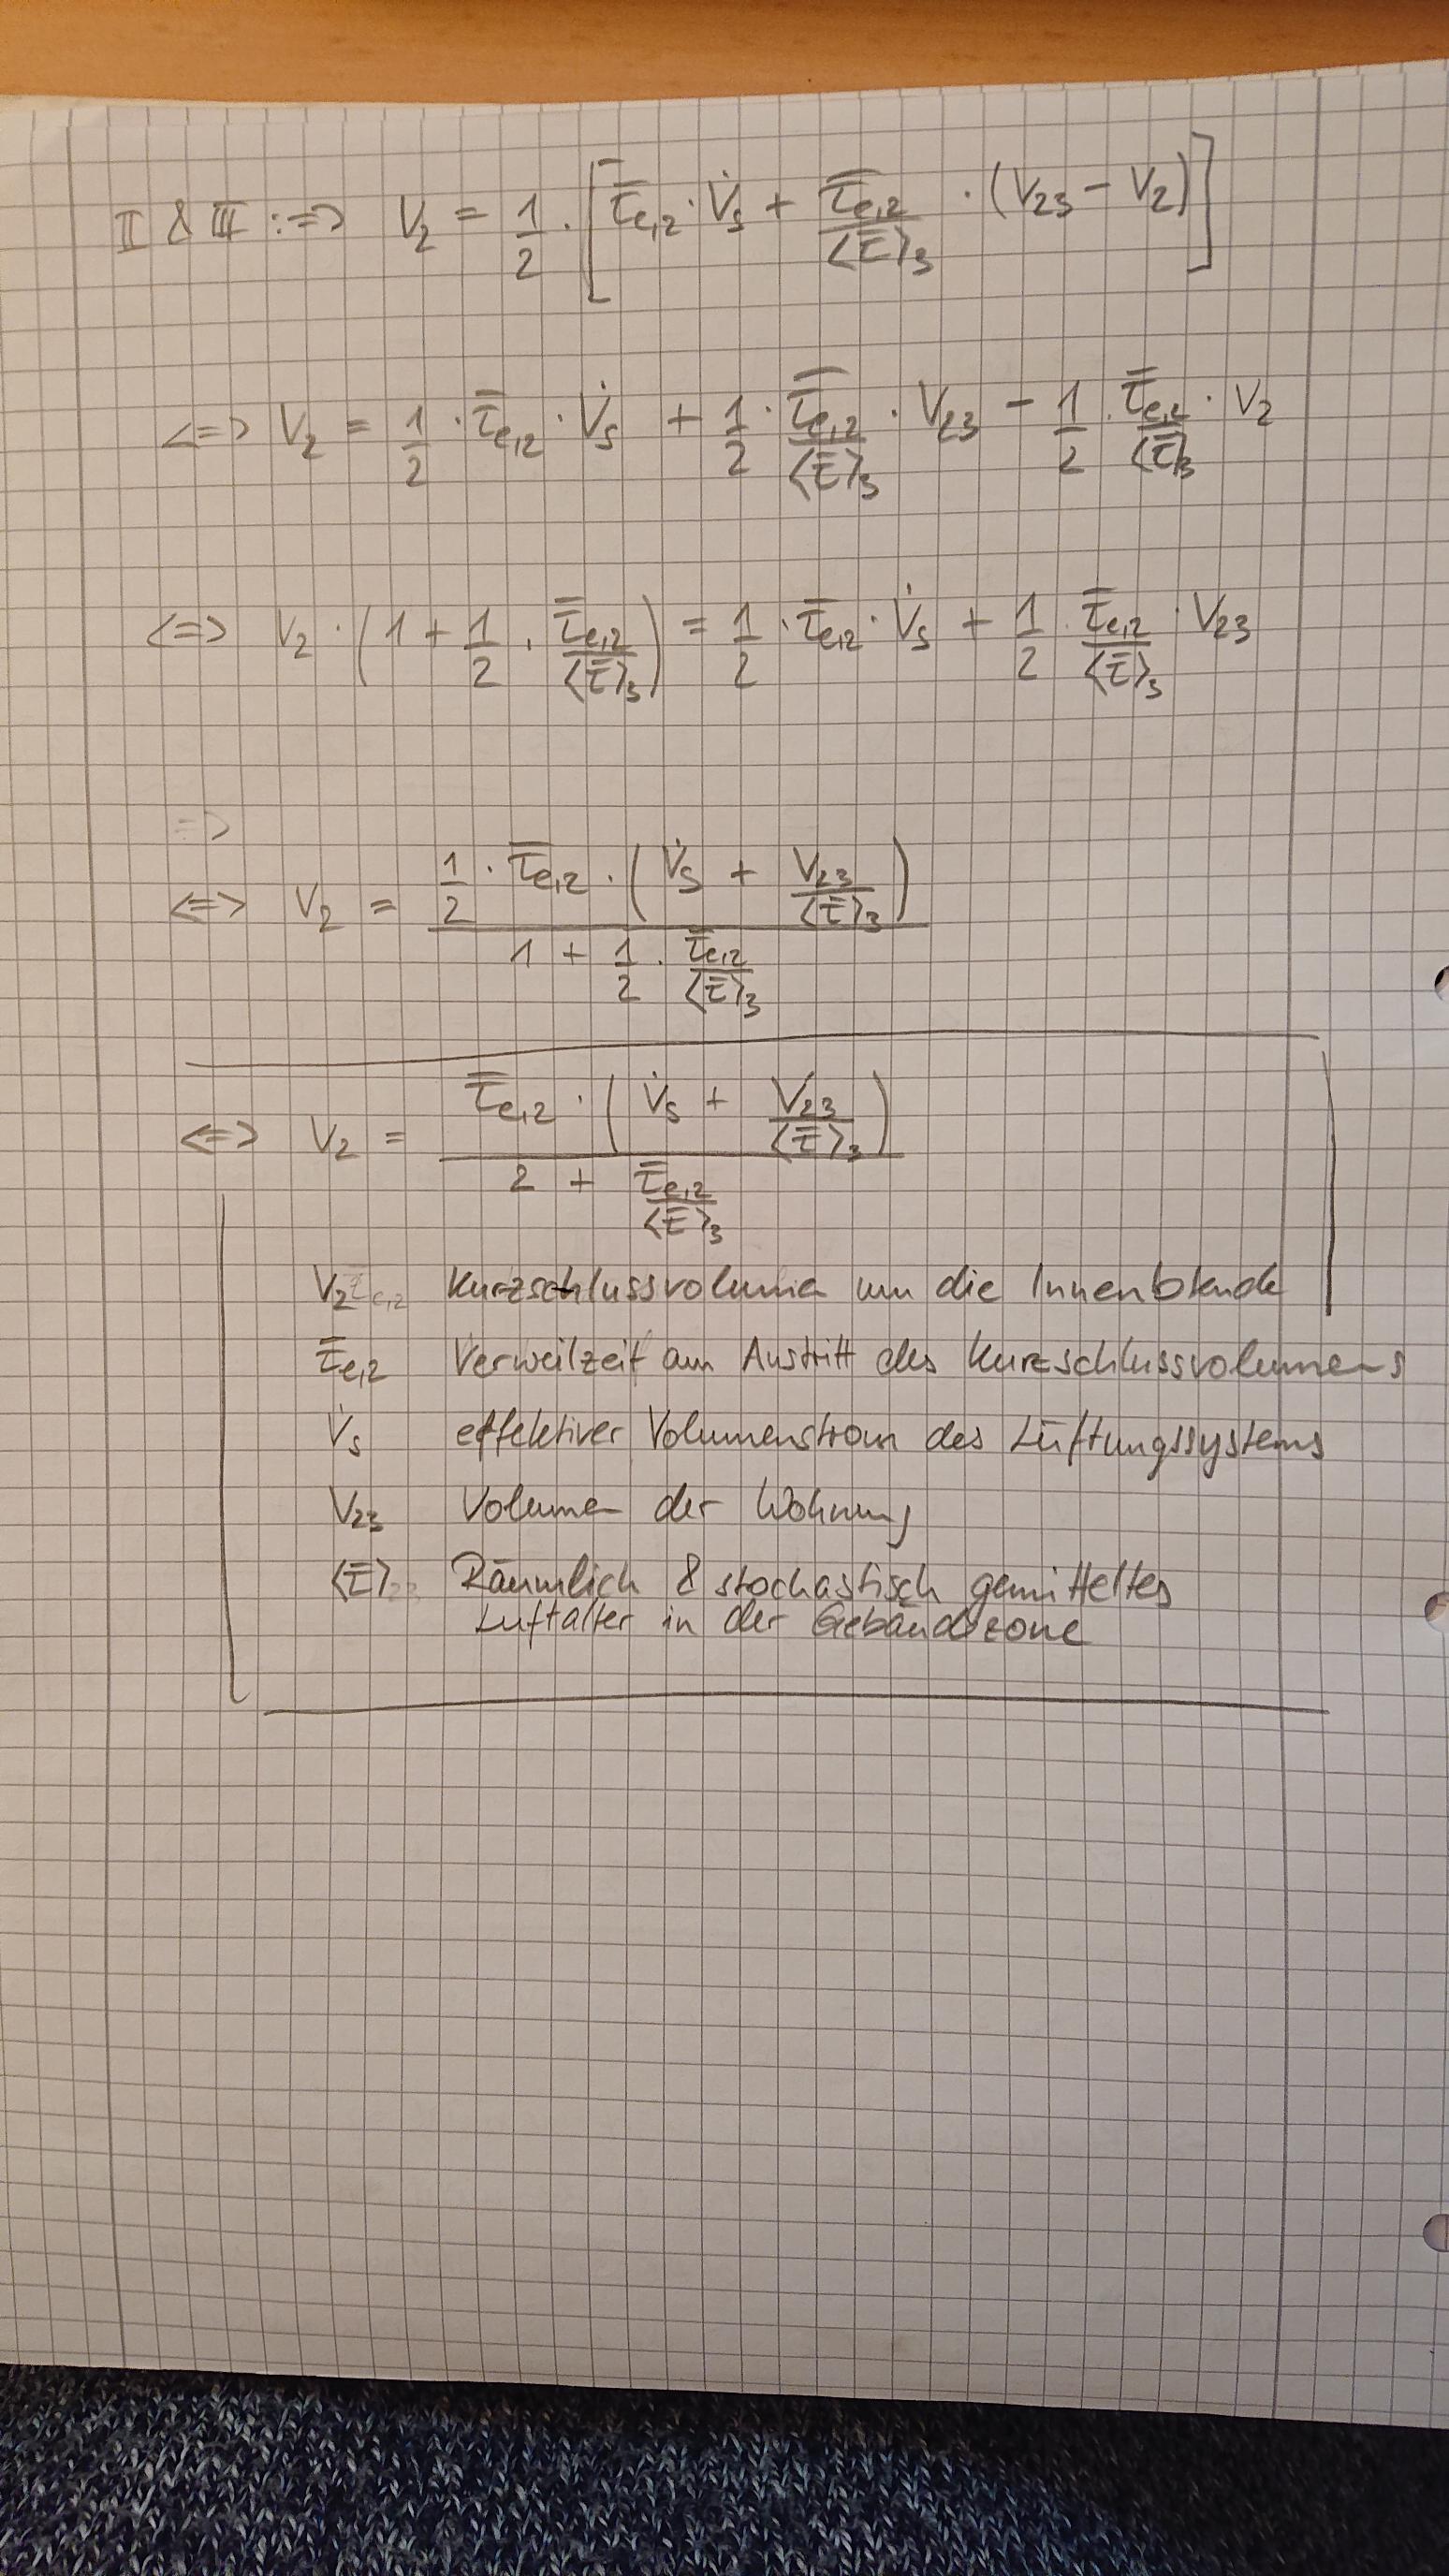 II & III :=> V₂ = 1/2 · [τ̿ₑ,₂ · V̇ₛ + τ̿ₑ,₂/⟨τ̿⟩₃ · (V₂₃ − V₂)]
<=> V₂ = 1/2 · τ̿ₑ,₂ · V̇ₛ + 1/2 · τ̿ₑ,₂/⟨τ̿⟩₃ · V₂₃ − 1/2 · τ̿ₑ,₂/⟨τ̿⟩₃ · V₂
<=> V₂ · (1 + 1/2 · τ̿ₑ,₂/⟨τ̿⟩₃) = 1/2 · τ̿ₑ,₂ · V̇ₛ + 1/2 · τ̿ₑ,₂/⟨τ̿⟩₃ · V₂₃
=>
<=> V₂ = (1/2 · τ̿ₑ,₂ · (V̇ₛ + V₂₃/⟨τ̿⟩₃)) / (1 + 1/2 · τ̿ₑ,₂/⟨τ̿⟩₃)
<=> V₂ = (τ̿ₑ,₂ · (V̇ₛ + V₂₃/⟨τ̿⟩₃)) / (2 + τ̿ₑ,₂/⟨τ̿⟩₃)
V₂ Kurzschlussvolumen um die Innenblende
τ̿ₑ,₂ Verweilzeit am Austritt des Kurzschlussvolumens
V̇ₛ effektiver Volumenstrom des Lüftungssystems
V₂₃ Volumen der Wohnung
⟨τ̿⟩ Räumlich & stochastisch gemitteltes
Luftalter in der Gebäudezone